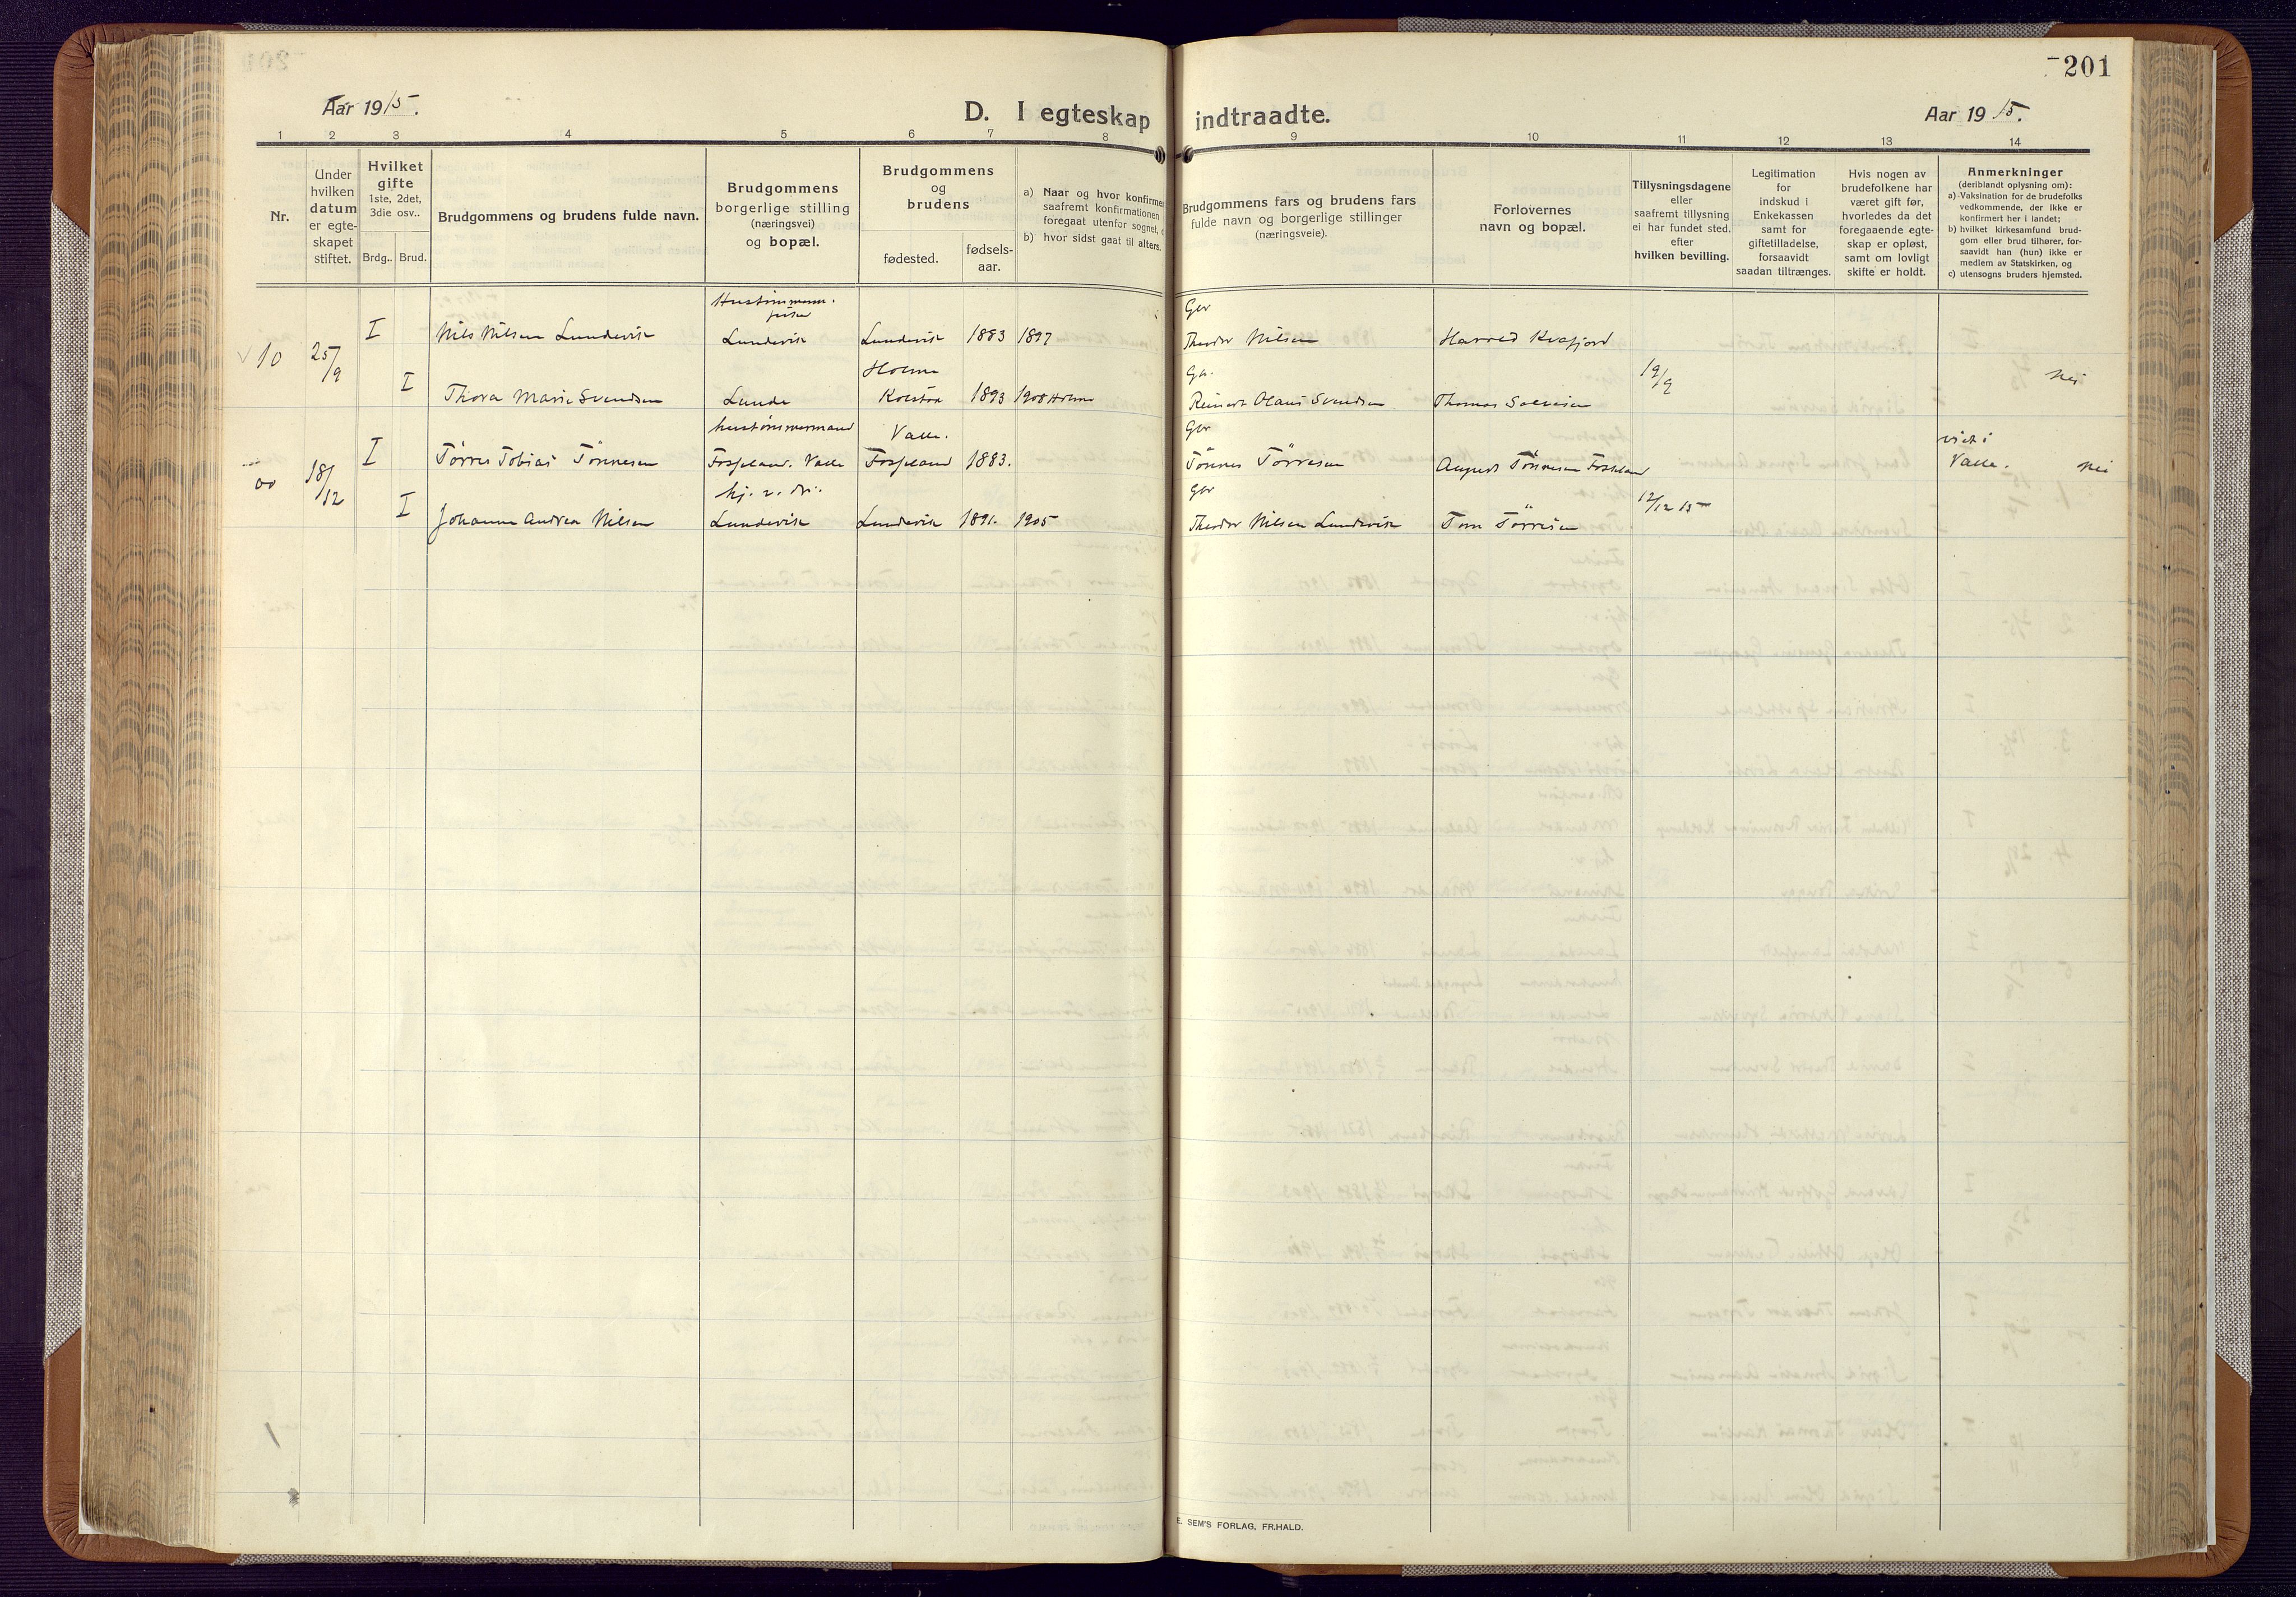 201
Aar 1915.
D. I egteskap indtraadte.
Aar 1915.
1 2 3 4 5 6 7 8 9 10 11 12 13 14
Nr.
Under hvilken datum er egteskapet stiftet.
Hvilket gifte 1ste, 2det, 3die osv..
Brdg.. Brud.
Brudgommens og brudens fulde navn.
Brudgommens borgerlige stilling (næringsvei) og bopæl.
Brudgommens og brudens
fødested. fødsels-aar.
a) Naar og hvor konfirme
saafremt konfirmationen
foregaat utenfor sognet,
b) hvor sidst gaat til alters.
Brudgommens fars og brudens fars fulde navn og borgerlige stillinger (næringsveie).
Forlovernes navn og bopæl.
Tillysningsdagene eller saafremt tillysning ei har fundet sted. efter hvilken bevilling.
Legitimation for indskud i Enkekassen samt for giftetilladelse, forsaavidt saadan tiltrænges.
Hvis nogen av brudefolkene har været gift før, hvorledes da det foregaaende egteskap er opløst, samt om lovligt skifte er holdt.
Anmerkninger
(deriblandt oplysning om):
a) Vaksination for de brudefolks vedkommende, der ikke er konfirmert her i landet;
b) hvilket kirkesamfund brudgom eller brud tilhører, forsaavidt han (hun) ikke er medlem av Statskirken, og
c) utensogns bruders hjemsted.
Gbr
10 25/9 I Nils Nilsen Lundevik Lundevik Lundevik 1883 1897 Theodor Nilsen Harald Kvafjord
Holme 19/9 nei
I Thora Marie Svendsen Lunde 1893 1908 Holme Reinert Olaus Svendsen Thomas
hustømmermand Valle. Gbr
18/12 I Tørres Tobias Tönnesen Fosseland. Valle Fosseland 1883. Tönnes Törresen August Tönnesen Fosseland Valle. nei
Gbr 12/12 15
I Johanne Andrea Nilsen Lundevik Lundevik 1891. 1905 Theodor Nilsen Lundevik Tom Törresen
E. SEM'S FORLAG, FR.HALD.